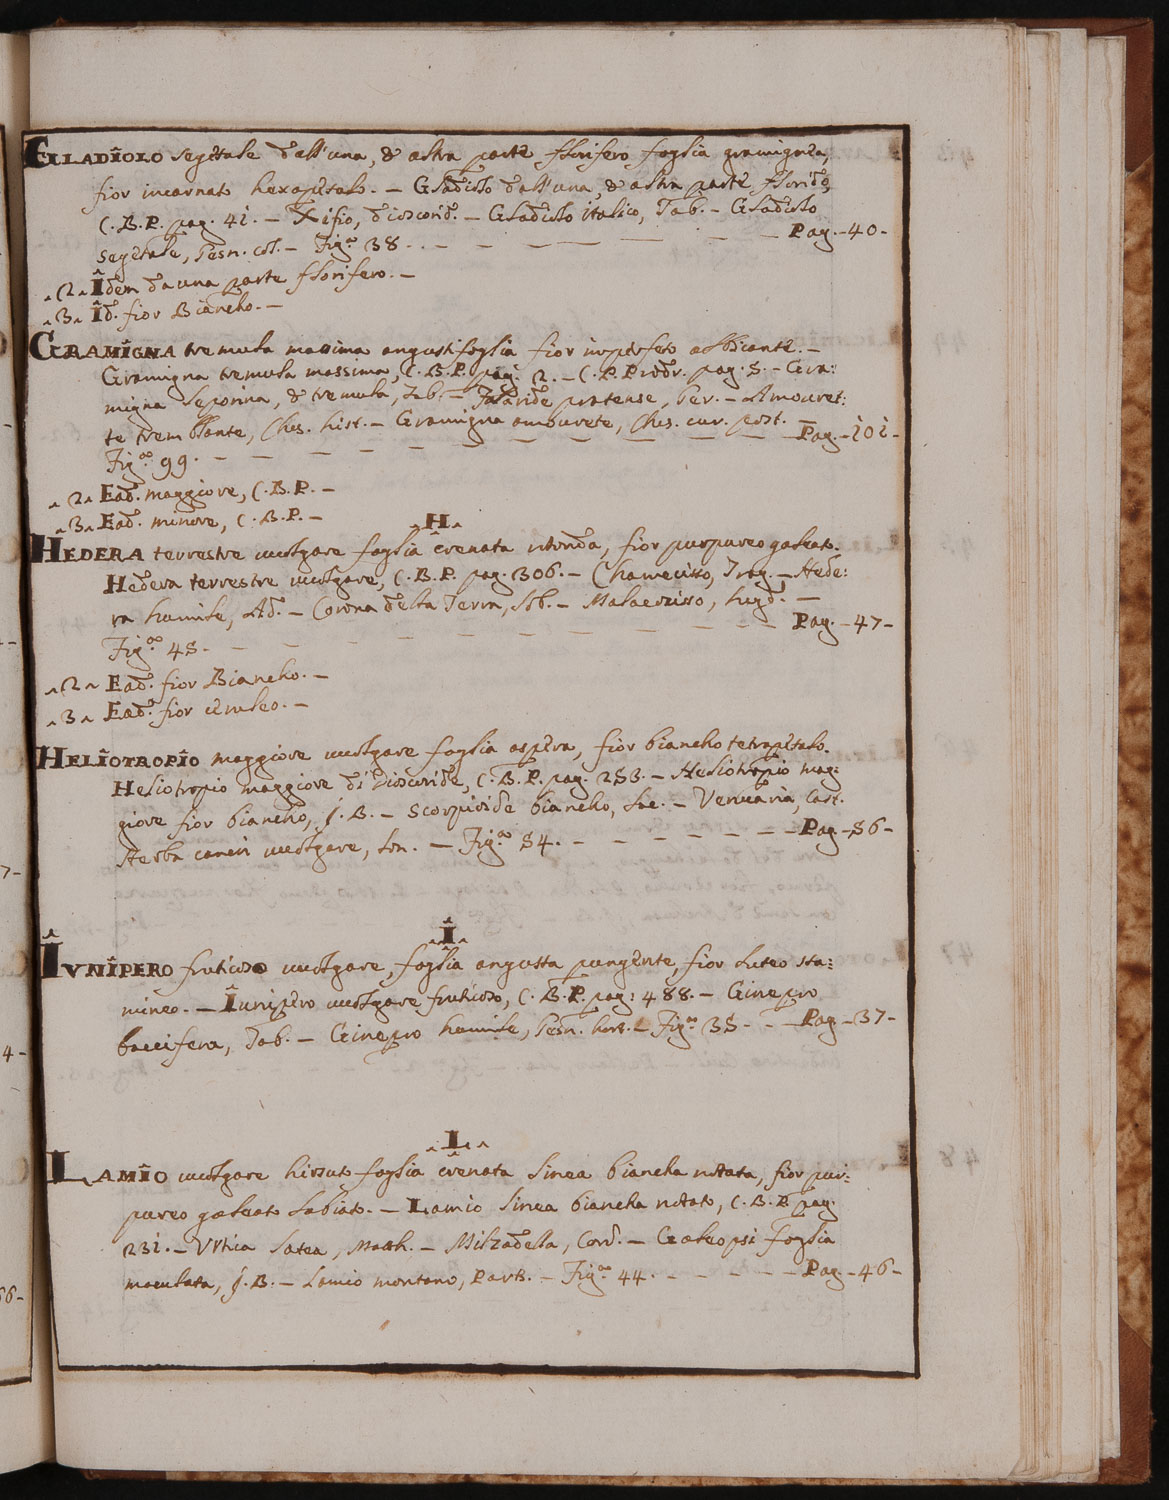 GLLADIOLO segetale dall'una, & altra parte florifero foglia graminea,
fior incarnato hexapetalo. – Gladiolo dall'una, & altra parte florido,
C.B.P. pag. 41. – Xifio, dioscorid. – Gladiolo italico, Tab. – Gladiolo
segetale, Gesn. col. – Fig.ª 38. – – – – – – – Pag. – 40 –
2 Idem da una parte florifero. –
3 Id. fior Biancho. –
GRAMIGNA tremula massima angustifoglia fior imperfeto albicante. –
Gramigna tremula massima, C.B.P. pag. 2. – C.P. Prodr. pag. 5. – Gra:
migna leporina, & tremula, Tab. – Falaride pratense, Ger. – Amouret:
te tremblante, Ches. hist. – Gramigna amourete, Ches. cur. post. –
Fig.ª 99. – – – – – – – – – Pag. – 101 –
2 Ead. maggiore, C.B.P. –
3 Ead. minore, C.B.P. –
H
HEDERA terrestre vulgare foglia crenata rotonda, fior purpureo galeato.
Hedera terrestre vulgare, C.B.P. pag. 306. – Chamecisso, Trag. – Hede:
ra humile, Ad. – Corona della Terra, Lob. – Malacocisso, lugd. –
Fig.ª 45. – – – – – – – – – Pag. – 47 –
2 Ead. fior Biancho. –
3 Ead. fior ceruleo. –
HELIOTROPIO maggiore vulgare foglia aspera, fior biancho tetrapetalo.
Heliotropio maggiore di Dioscoride, C.B.P. pag. 253. – Heliotropio mag:
giore fior biancho, J.B. – Scorpioide biancho, Lac. – Verucaria, Cast.
Herba cancri vulgare, Lon. – Fig.ª 54. – – – – – – – Pag. – 56 –
I
IUNIPERO fruticoso vulgare, foglia angusta pungente, fior luteo sta:
mineo. – Iunipero vulgare fruticoso, C.B.P. pag: 488. – Ginepro
baccifera, Tab. – Ginepro humile, Gesn. hort. – Fig.ª 35. – – Pag. – 37 –
L
LAMIO vulgare hirsuto foglia crenata linea biancha notata, fior pur:
pureo galeato labiato. – Lamio linea biancha notato, C.B.P. pag.
231. – Vrtica latea, Matth. – Milzadella, Cord. – Galeopsi foglia
maculata, J.B. – Lamio montano, Park. – Fig.ª 44. – – – – – – Pag. – 46 –